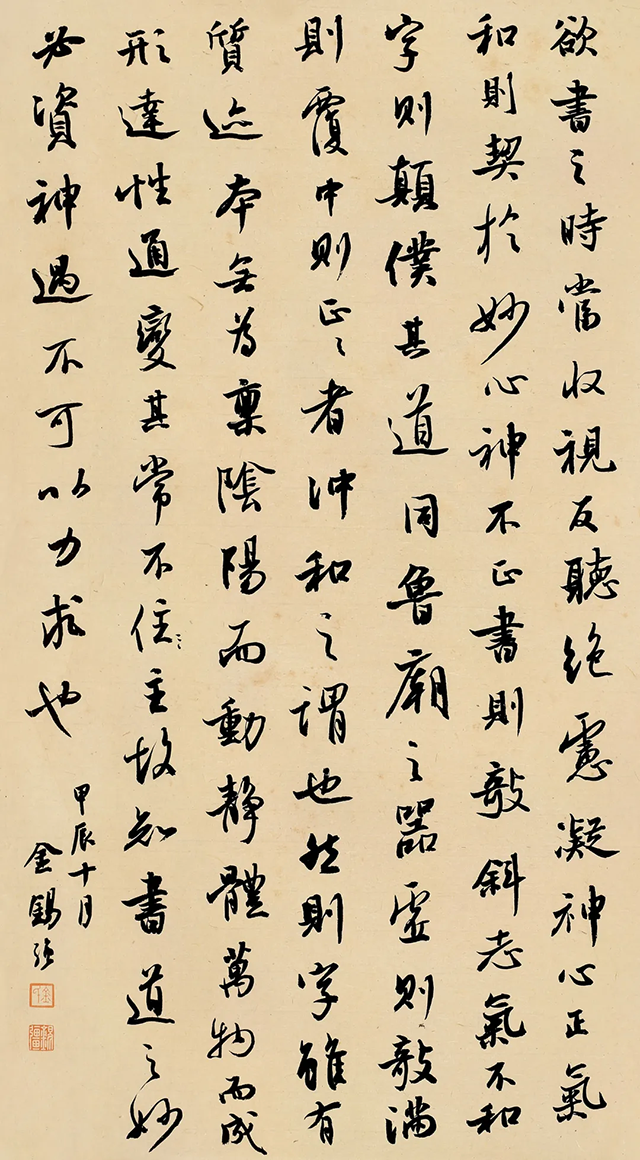 欲書之時當收視反聽絶慮凝神心正氣
和則契於妙心神不正書則敧斜志氣不和
字則顛僕其道同魯廟之器虛則敧滿
則覆中則正々者沖和之謂也然則字雖有
質迹本無為稟陰陽而動靜體萬物而成
形達性通變其常不住主故知書道之妙
必資神遇不可以力求也
甲辰十月
金錫